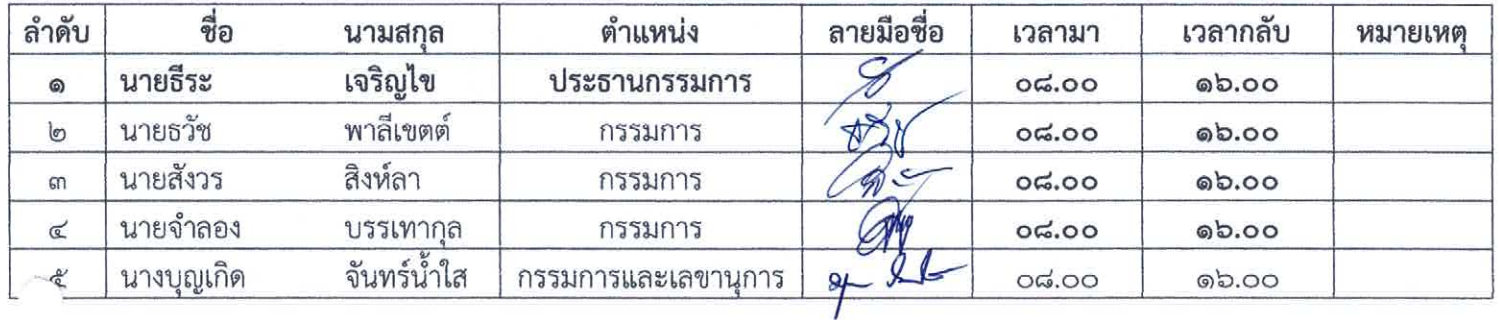 ลำดับ ชื่อ นามสกุล ตำแหน่ง ลายมือชื่อ เวลามา เวลากลับ หมายเหตุ
๑ นายธีระ เจริญไข ประธานกรรมการ ๐๘.๐๐ ๑๖.๐๐
๒ นายธวัช พาลีเขตต์ กรรมการ ธวัช ๐๘.๐๐ ๑๖.๐๐
๓ นายสังวร สิงห์ลา กรรมการ ๐๘.๐๐ ๑๖.๐๐
๔ นายจำลอง บรรเทากุล กรรมการ ๐๘.๐๐ ๑๖.๐๐
๕ นางบุญเกิด จันทร์น้ำใส กรรมการและเลขานุการ ๐๘.๐๐ ๑๖.๐๐